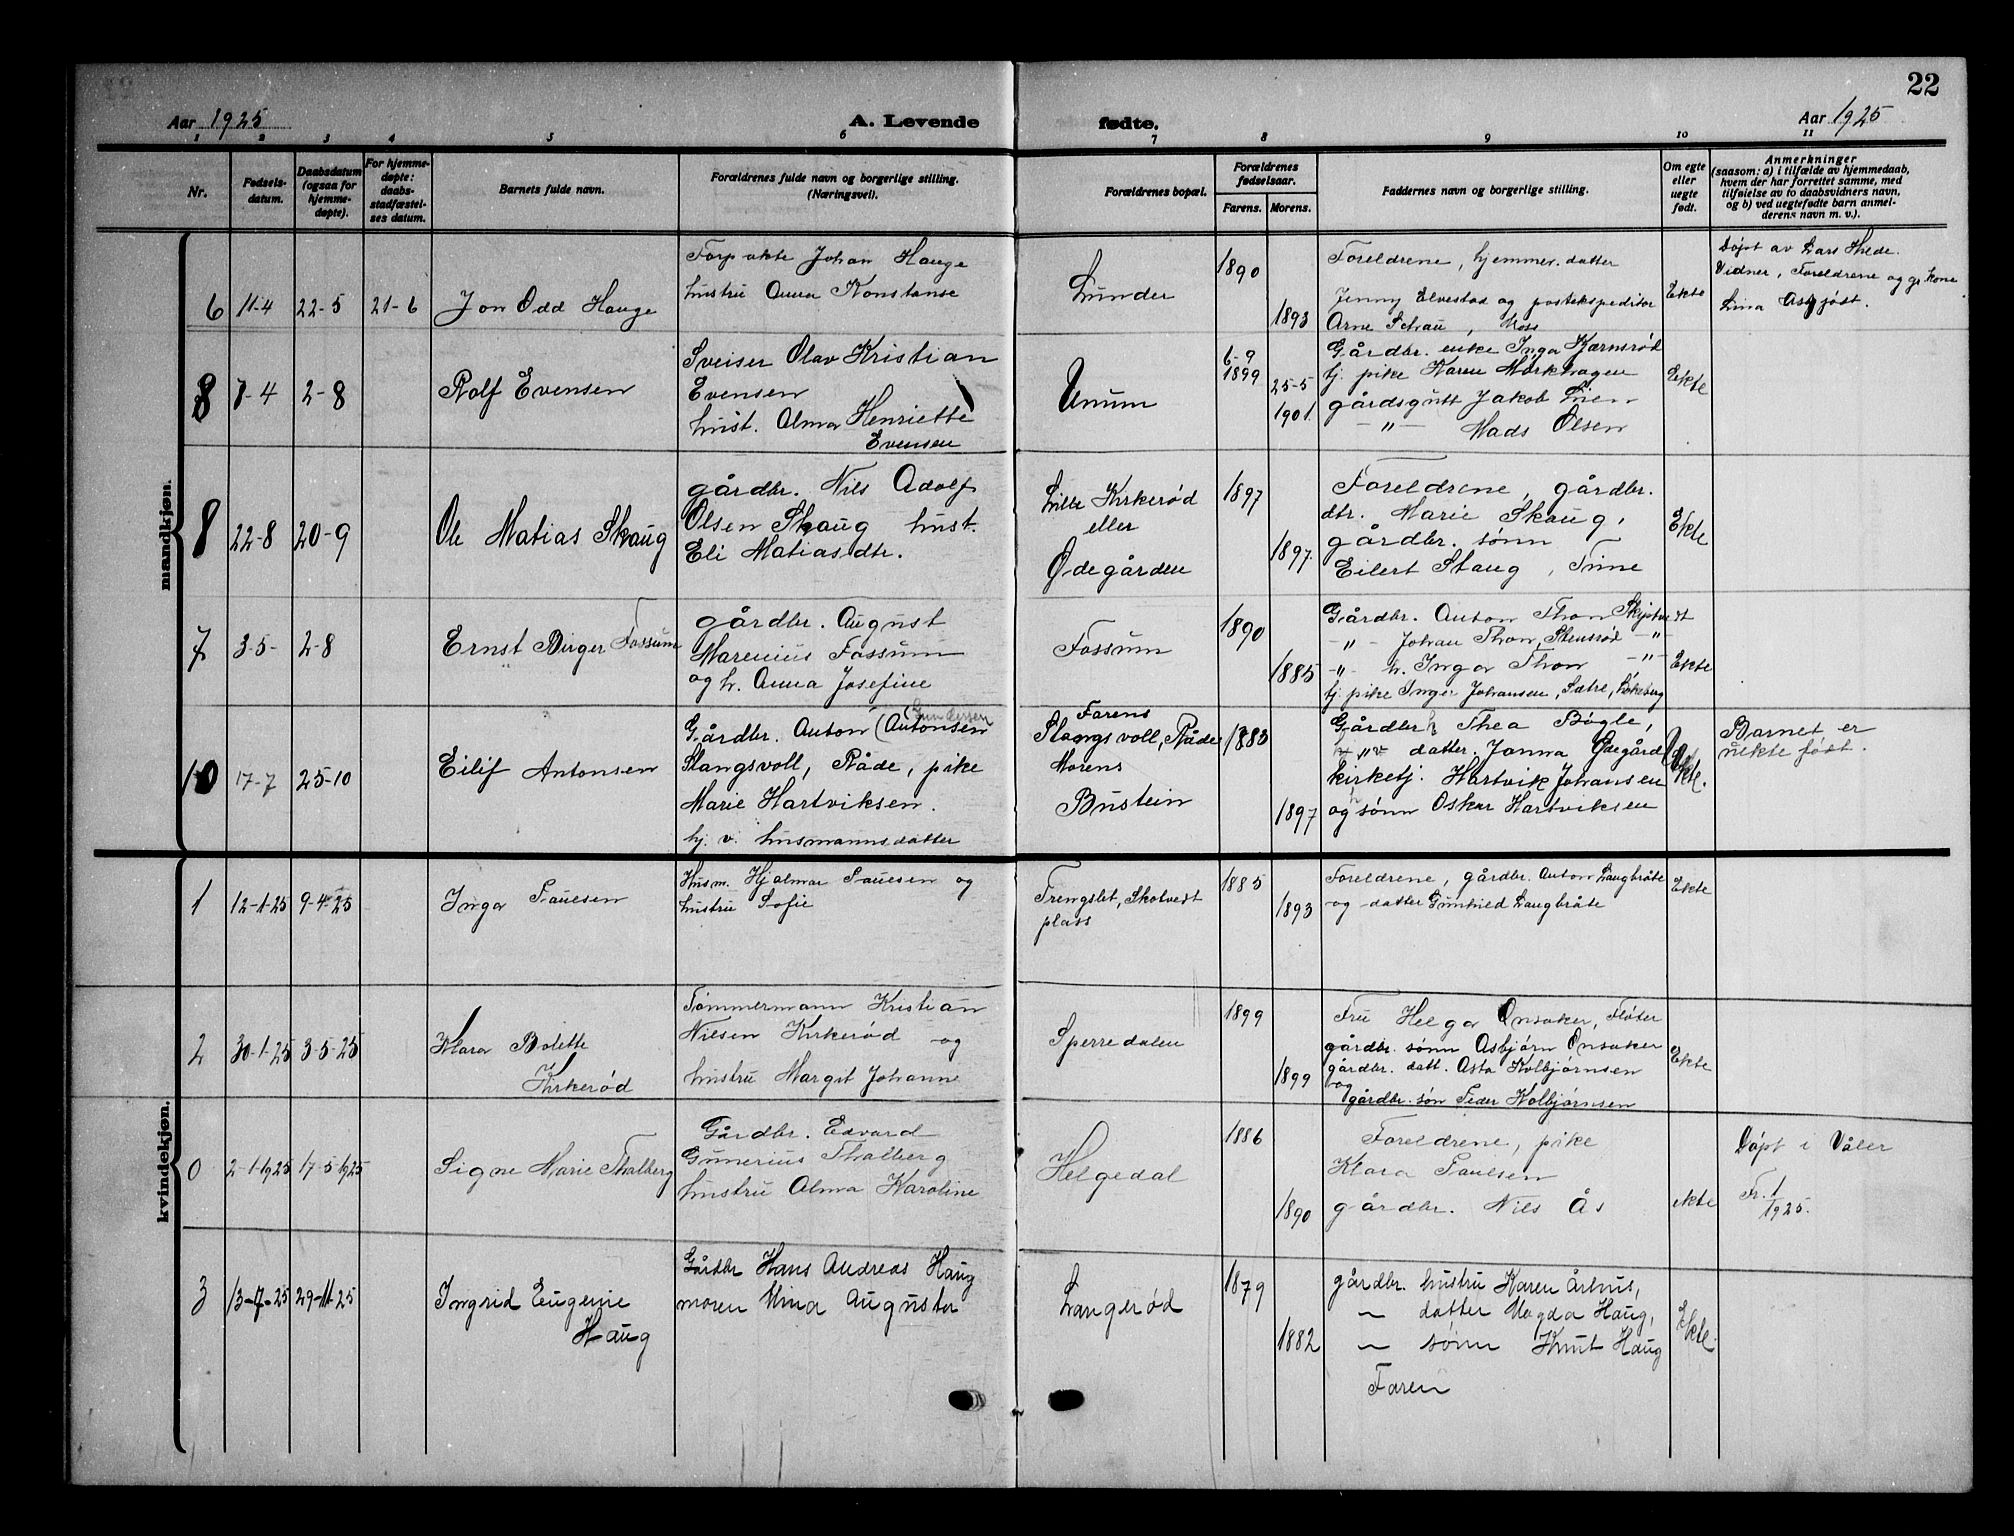 22
Aar 1925
A. Levende
fødte.
Aar 1925
1 2 3 4 5 6 7 8 9 10 11
Nr.
Fødsels-
datum.
Daabsdatum
(ogsaa for
hjemme-
døpte).
For hjemme-
døpte:
daabs-
stadfæstel-
ses datum.
Barnets fulde navn.
Forældrenes fulde navn og borgerlige stilling.
(Næringsvei).
Forældrenes bopæl.
Forældrenes
fødselsaar.
Farens. Morens.
Faddernes navn og borgerlige stilling.
Om egte
eller
uegte
født.
Anmerkninger
(saasom: a) i tilfælde av hjemmedaab,
hvem der har forrettet samme, med
tilføielse av to daabsvidners navn,
og b) ved uegtefødte barn anmel-
derens navn m. v.).
mandkjøn.
6
11-4
22-5
21-6
Jon Odd Hauge
Forpakte Johan Hauge
hustru Anna Konstanse
Lunder
1890
1893
Foreldrene, hjemmev. datter
Jenny Elvestad og postekspeditør
Arne Schau, Moss
Ekte
Døpt av Lars Hvede.
Vidner, Foreldrene og gr. kone
Lina Asbjødt.
8
7-4
2-8
Rolf Evensen
Sveiser Olav Kristian
Evensen
hust. Alma Henriette
Evensen
Unum
6-9
1899
25-5
1901.
Gårdbr. enke Inga Kjærnsrød
tj. pike Karen Mørkhagen
gårdsgutt Jakob Lien
- " - Mads Olsen
Ekte
8
22-8
20-9
Ole Matias Skaug
gårdbr. Nils Adolf
Olsen Skaug hust.
Eli Matiasdtr.
Lille Kirkerød
eller
Ødegården
1897
1897.
Foreldrene, gårdbr.
dtr. Marie Skaug,
gårdbr. sønn
Eilert Skaug, Tune
Ekte
7
3-5-
2-8
Ernst Birger Fossum
gårdbr. August
Marenius Fossum
og h. Anna Josefine
Fossum
1890
1885
Gårdbr. Anton Thon Skiptvedt
- " - Johan Thon, Stensrød - " -
- " - h. Inga Thon - " -
tj. pike Inger Johansen, Sætre,
Ekte
10
17-7
25-10
Eilif Antonsen
Gårdbr. Anton (Antonsen
Gundersen
Slangsvoll, Råde, pike
Marie Hartviksen.
hj. v. husmannsdatter
Farens
Slangsvoll, Råde
Morens
Bustein
1883
1897
Gårdbr h Thea Bøgle,
" datter. Janna Ødegård
kirketj. Hartvik Johansen
og sønn Oskar Hartviksen
Ekte.
Barnet er
uekte født.
kvindekjøn.
1
12-1-25
9-4-25
Inga Paulsen
Husm. Hjalmar Paulsen og
hustru Sofie
Trengslet, Skotvedt
plass
1885
1893
Foreldrene, gårdbr. Anton Laugbråte
og - datter Gunhild Laugbråte
Ekte
2
30-1-25
3-5-25
Klara Bolette
Kirkerød
Tømmermann Kristian
Nilsen Kirkerød og
hustru Margit Johanne
Sperredalen
1899
1899
Fru Helga Onsaker, Fløter
gårdbr. sønn Asbjørn Onsaker
gårdbr. datt. Asta Kolbjørnsen
og
gårdbr. søn Peder Kolbjørnsen
Ekte
0
2-1-1925
17-5-1925
Signe Marie Thalberg
Gårdbr. Edvard
Gunerius Thalberg
hustru Alma Karoline
Helgedal
1886
1890
Foreldrene, pike
Klara Paulsen
gårdbr. Nils Ås
ekte
Døpt i Våler
Fr. 1
1925.
3
13-7-25
29-11-25
Ingrid Eugenie
Haug
Gårdbr Hans Andreas Haug
moren Mina Augusta
Langerød
1879
1882
gårdbr. hustru Karen Århus,
— datter Magda Haug,
— sønn Knut Haug
Faren
Ekte.